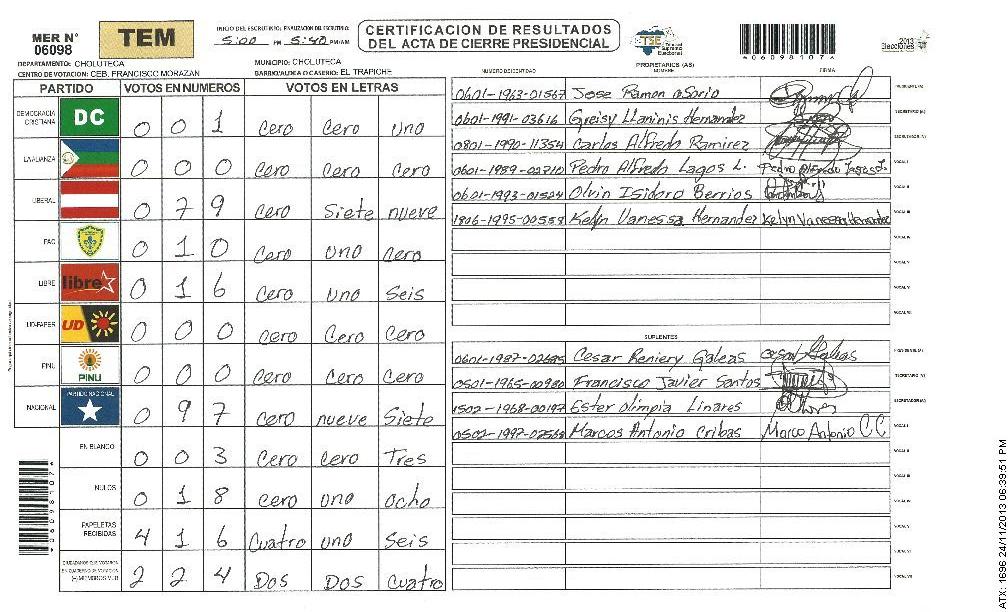 MER N° 06098
TEM
INICIO DEL ESCRUTINIO: FINALIZACION DEL ESCRUTINIO:
5:00 PM 5:40 PM/AM
CERTIFICACION DE RESULTADOS
DEL ACTA DE CIERRE PRESIDENCIAL
TSE Tribunal Supremo Electoral
2013 Elecciones
*06098107*
DEPARTAMENTO: CHOLUTECA
MUNICIPIO: CHOLUTECA
CENTRO DE VOTACION: CEB. FRANCISCO MORAZAN
BARRIO/ALDEA O CASERIO: EL TRAPICHE
PARTIDO VOTOS EN NUMEROS VOTOS EN LETRAS
DEMOCRACIA CRISTIANA DC 0 0 1 Cero Cero Uno
LA ALIANZA 0 0 0 Cero Cero Cero
LIBERAL 0 7 9 Cero Siete nueve
PAC 0 1 0 Cero uno Cero
LIBRE libre 0 1 6 Cero Uno Seis
UD-FAPER UD 0 0 0 Cero Cero Cero
PINU PINU 0 0 0 Cero Cero Cero
NACIONAL PARTIDO NACIONAL 0 9 7 Cero nueve Siete
EN BLANCO 0 0 3 Cero Cero Tres
NULOS 0 1 8 Cero uno ocho
PAPELETAS RECIBIDAS 4 1 6 Cuatro uno Seis
CIUDADANOS QUE VOTARON EN CUADERNO DE VOTACION (+) MIEMBROS MER 2 2 4 Dos Dos Cuatro
*06098107*
PROPIETARIOS (AS)
NUMERO DE IDENTIDAD NOMBRE FIRMA
0601-1963-01567 Jose Ramon oSorio PRESIDENTE (A)
0601-1991-03616 Greisy Llaninis Hernandez SECRETARIO (A)
0801-1990-11354 Carlos Alfredo Ramirez ESCRUTADOR (A)
0601-1959-02710 Pedro Alfredo Lagos L. Pedro Alfredo Lagos L. VOCAL I
0601-1993-01524 Olvin Isidoro Berrios VOCAL II
1806-1995-00558 Kelyn Vanessa Hernandez Kelyn Vanessa Hernandez VOCAL III
VOCAL IV
VOCAL V
VOCAL VI
VOCAL VII
SUPLENTES
0601-1987-02685 Cesar Reniery Galeas Cesar Galeas PRESIDENTE (A)
0501-1965-00980 Francisco Javier Santos SECRETARIO (A)
1502-1968-00197 Ester olimpia Linares ESCRUTADOR (A)
0502-1997-02569 Marcos Antonio Cribas Marco Antonio C C VOCAL I
VOCAL II
VOCAL III
VOCAL IV
VOCAL V
VOCAL VI
VOCAL VII
ATX: 1696 24/11/2013 06:39:51 PM